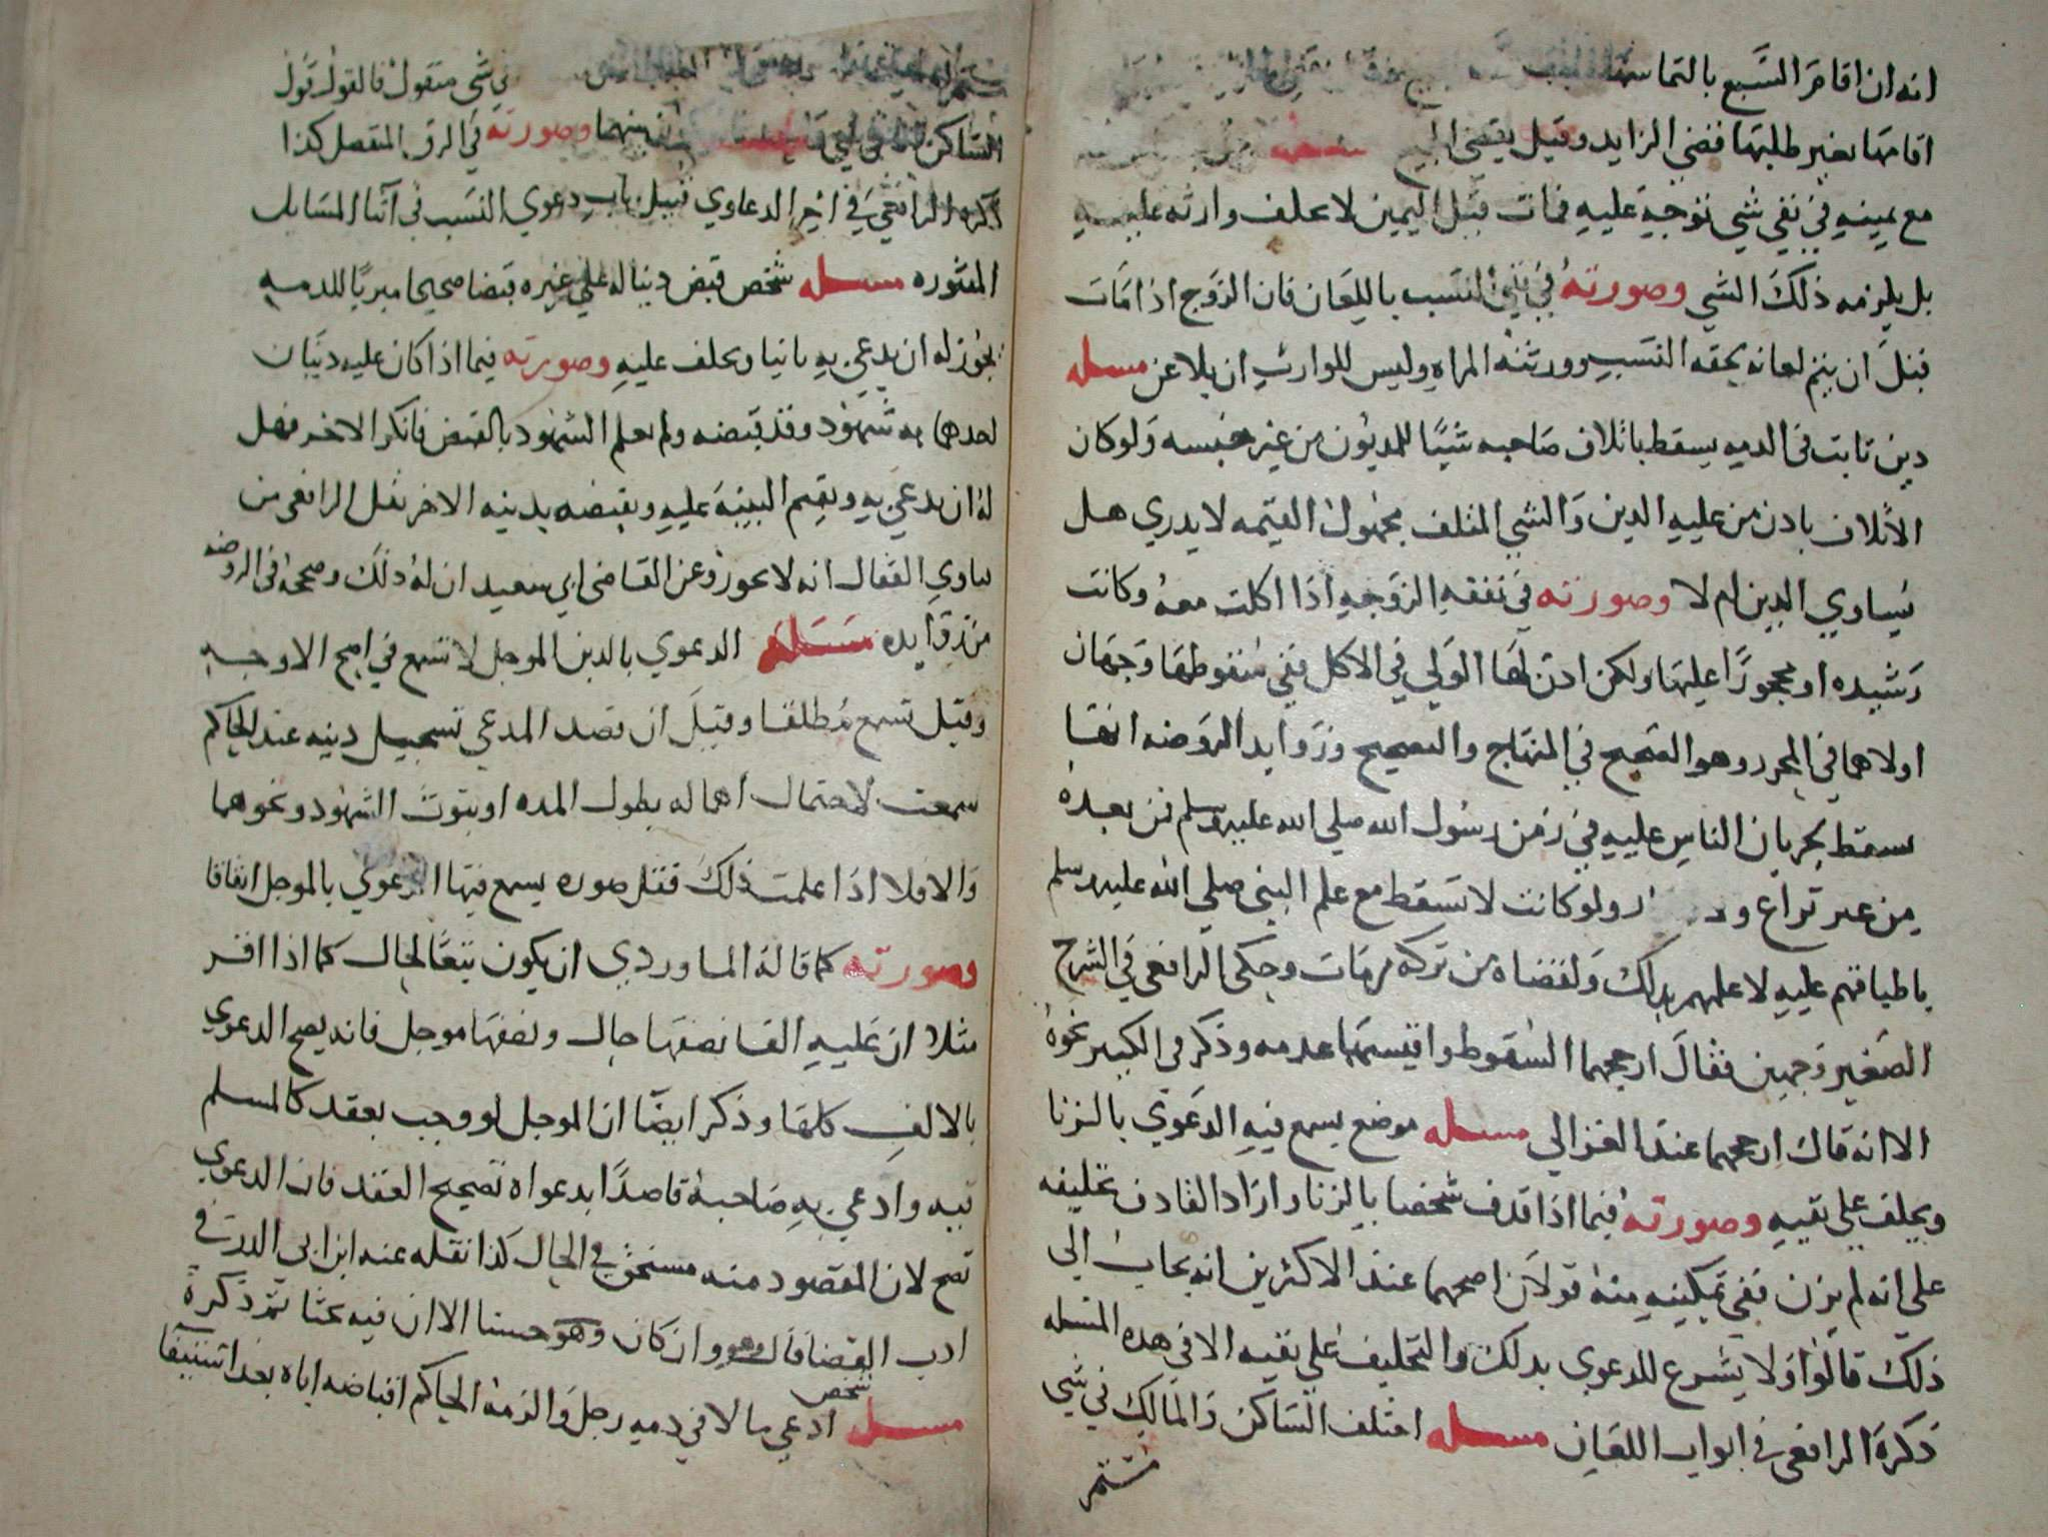 انه ان اقام السبع بالتماسها
اقامها بغير طلبها قضي الزايد وقيل يقضي
مع يمينه في نفي شي توجه عليه فمات قبل اليمين لا يحلف وارثه عليه
بل يلزمه ذلك الشي وصورته في نفي النسب باللعان فان الزوج اذا مات
قبل ان يتم لعانه لحقه النسب وورثته المراه وليس للوارث ان يلاعن مسله
دين ثابت في الدمه يسقط باتلاف صاحبه شيا للمديون من غير جنسه ولو كان
الاتلاف بادن من عليه الدين والشي المتلف مجهول القيمه لا يدري هل
يساوي الدين ام لا وصورته في نفقه الزوجه اذا اكلت معه وكانت
رشيده او محجورا عليها ولكن ادن لها الولي في الاكل ففي سقوطها وجهان
اولاهما في المحرر وهو الصحيح في المنهاج والتصحيح وزوايد الروضه انها
سقط بجريان الناس عليه في زمن رسول الله صلي الله عليه وسلم فمن بعده
من غير نزاع و ولو كانت لا تسقط مع علم النبي صلي الله عليه وسلم
باطباقهم عليه لاعلمهم بدلك ولقضاه من تركه من مات وحكى الرافعي في الشرح
الصغير وجهين فقال ارجحهما السقوط واقيسهما عدمه وذكر في الكبير نحوه
الا انه قال ارجحهما عند الغزالي مسله موضع يسمع فيه الدعوي بالزنا
ويحلف علي نفيه وصورته فيما اذا قدف شخصا بالزنا واراد القادف تحليفه
علي انه لم يزن ففي تمكينه منه قولان اصحهما عند الاكثرين انه يجاب الي
ذلك قالوا ولا يشرع للدعوي بدلك والتحليف علي نفيه الا في هده المسله
ذكره الرافعي في ابواب اللعان مسله اختلف الساكن والمالك في شي
في شي منقول فالقول قول
الساكن بينهما وصورته في الرف المتصل كذا
ذكره الرافعي في اخر الدعاوي قبيل باب دعوي النسب في اثنا المسايل
المنثوره مسله شخص قبض دينا له علي غيره قبضا صحيحا مبريا للدمه
يجوز له ان يدعي به ثانيا ويحلف عليه وصورته فيما اذا كان عليه دينان
احدهما به شهود وقد قبضه ولم يعلم الشهود بالقبض فانكر الاخر فهل
له ان يدعي به ويقيم البينه عليه ويقبضه بدينه الاخر نقل الرافعي من
فتاوي القفال انه لا يجوز وعن القاضي ابي سعيد ان له ذلك وصححه في الروضه
من زوايده مسله الدعوي بالدين الموجل لا تسمع في اصح الاوجه
وقيل تسمع مطلقا وقيل ان قصد المدعي تسجيل دينه عند الحاكم
سمعت لاحتمال اهماله بطول المده او بموت الشهود ونحوهما
والا فلا اذا علمت ذلك فتقل صوره يسمع فيها الدعوي بالموجل اتفاقا
وصورته كما قاله الماوردي ان يكون تبعا لحال كما اذا اقر
مثلا ان عليه الفا نصفها حال ونصفها موجل فانه يصح الدعوي
بالالف كلها وذكر ايضا ان الموجل لو وجب بعقد كالمسلم
فيه وادعي به صاحبه قاصدا بدعواه تصحيح العقد فان الدعوي
تصح لان المقصود منه مستحق في الحال كذا نقله عنه ابن ابي الدم في
ادب القضا قال وهو وان كان وهو حسنا الا ان فيه بحثا ثم ذكره
مسله شخص ادعي مالا في دمه رجل والزمه الحاكم اقباضه اياه بعد